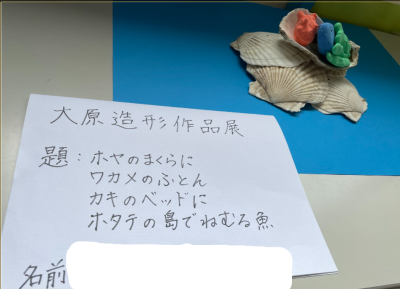 大原造形作品展
題：ホヤのまくらに
ワカメのふとん
カキのベッドに
ホタテの島でねむる魚
名前